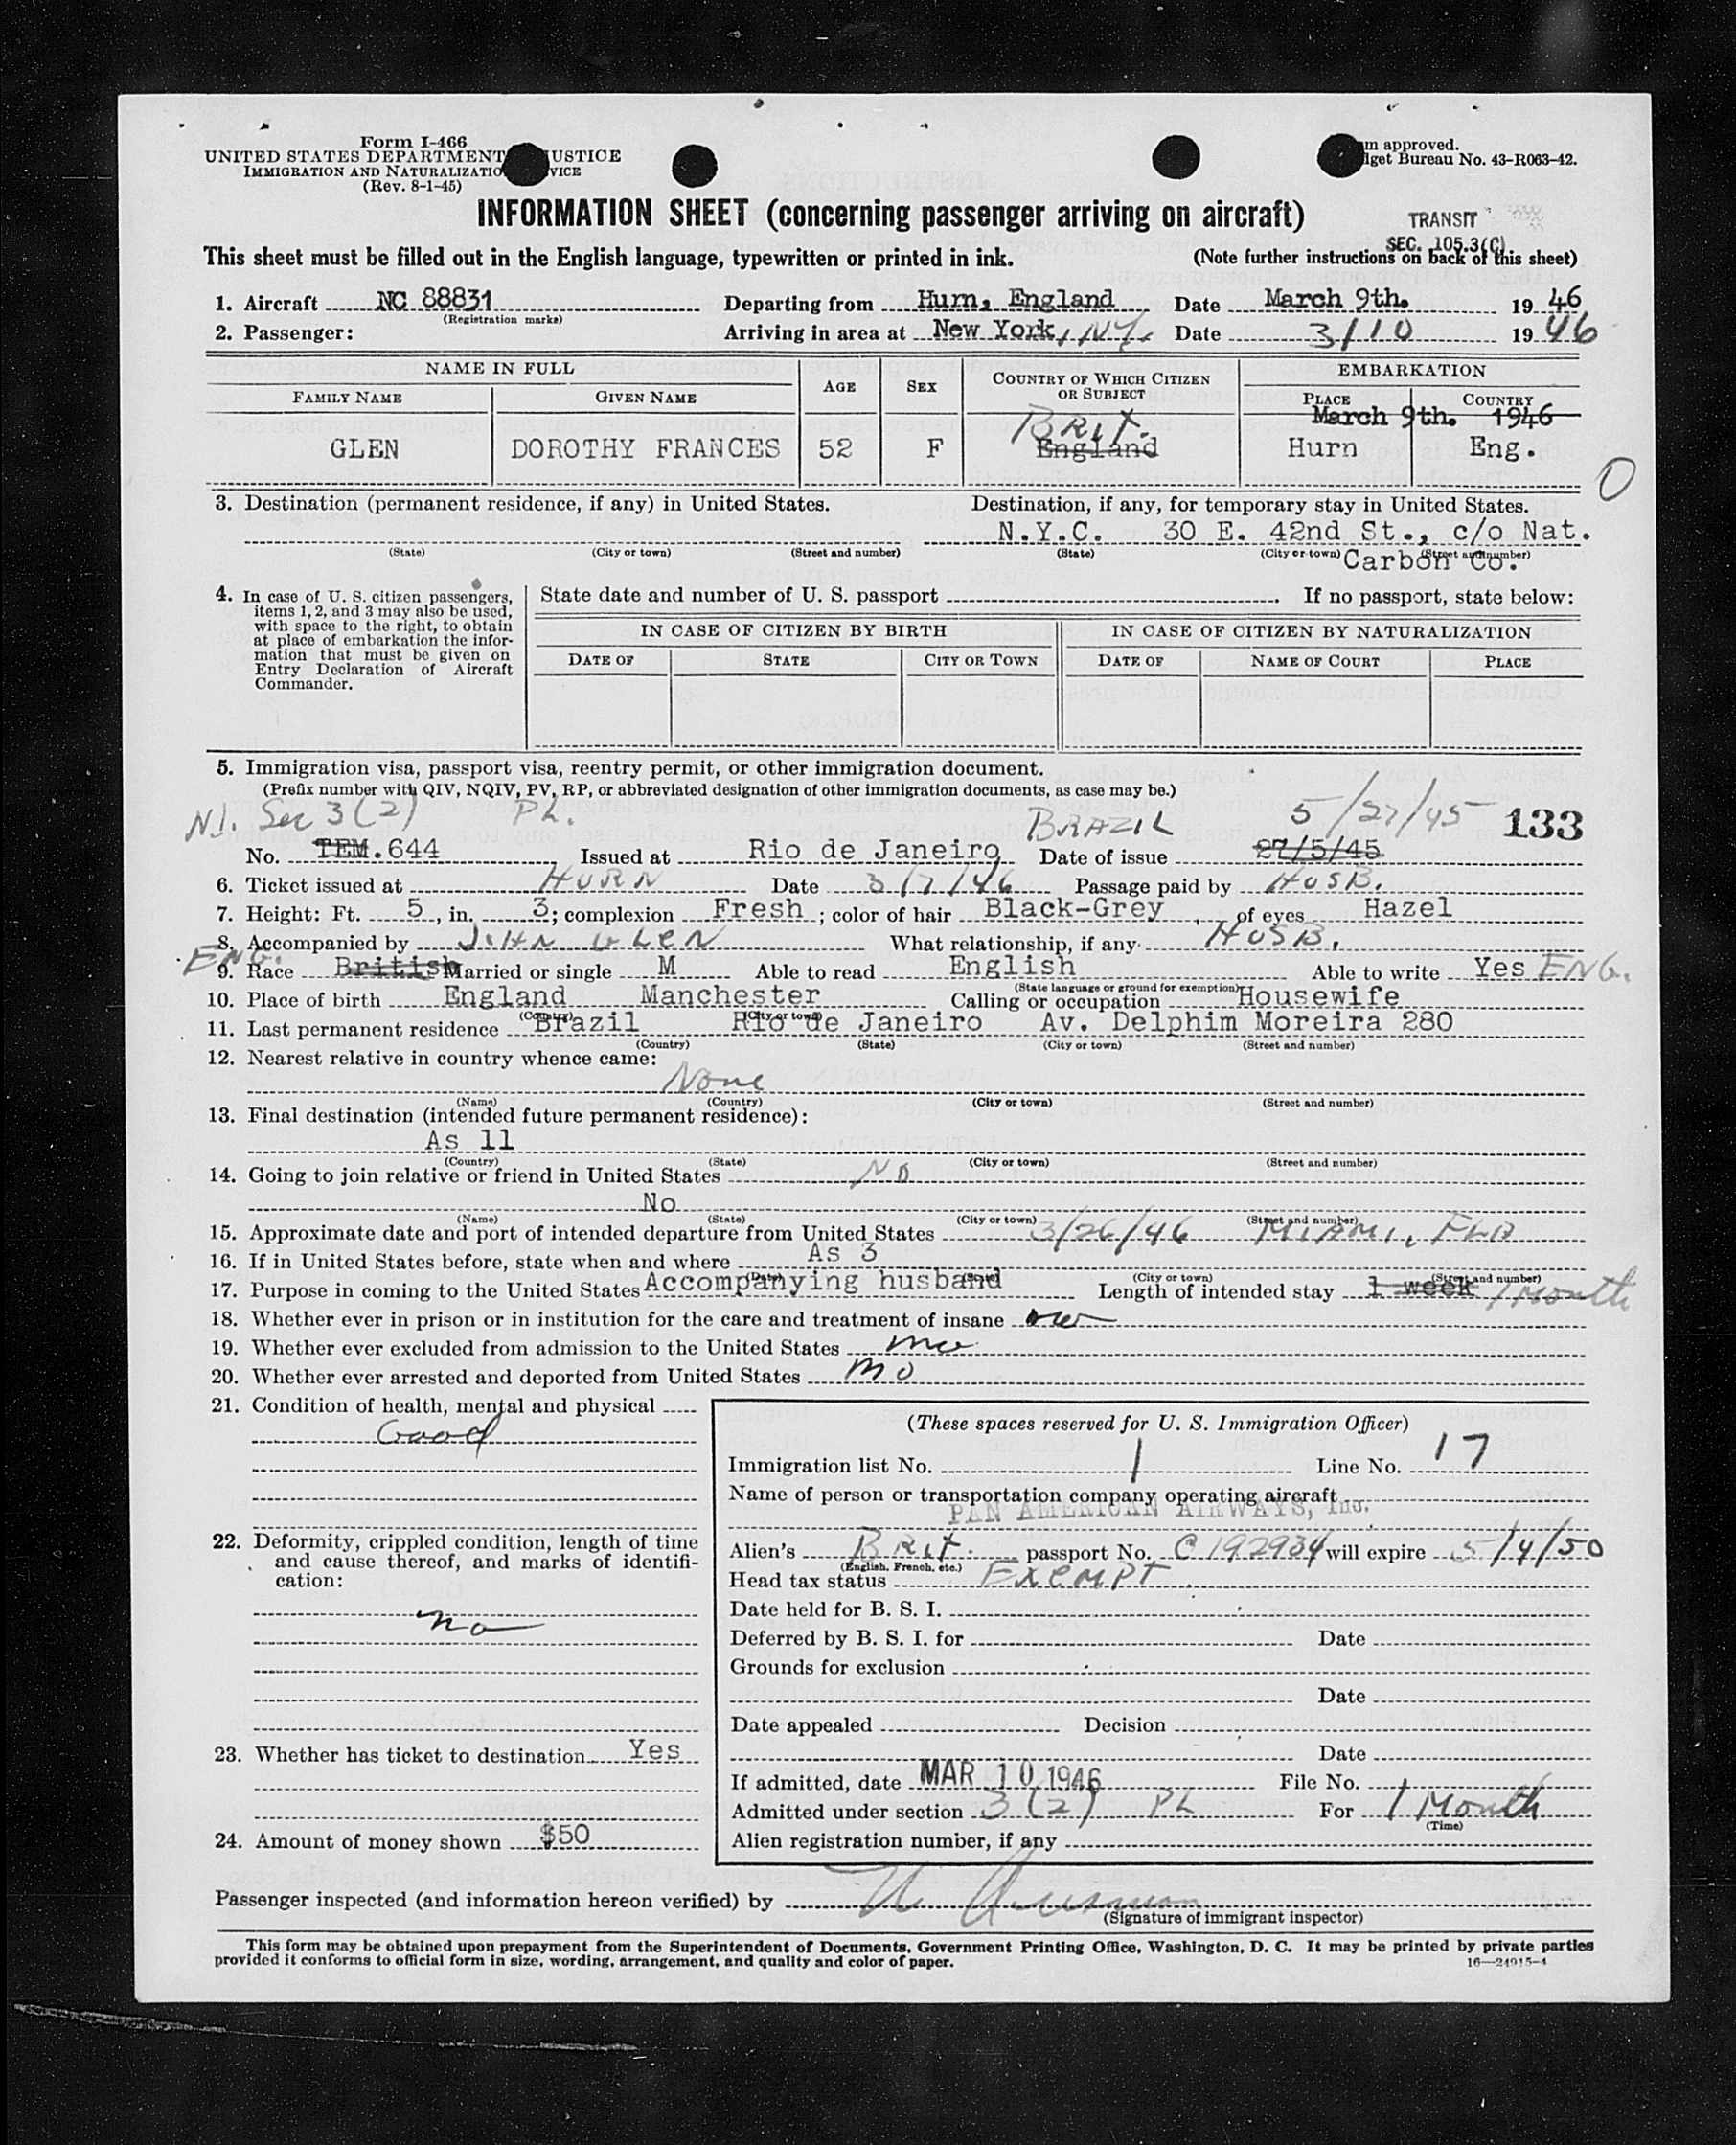 Form I-466
UNITED STATES DEPARTMENT USTICE
IMMIGRATION AND NATURALIZATIO VICE
(Rev. 8-1-45)
m approved.
get Bureau No. 43-R063-42.
INFORMATION SHEET (concerning passenger arriving on aircraft)
TRANSIT
SEC. 105.3(C)
This sheet must be filled out in the English language, typewritten or printed in ink. (Note further instructions on back of this sheet)
1. Aircraft NC 88831 Departing from Hurn, England Date March 9th. 19 46
(Registration marks)
2. Passenger: Arriving in area at New York, N.Y. Date 3/10 1946
NAME IN FULL AGE SEX COUNTRY OF WHICH CITIZEN OR SUBJECT EMBARKATION
FAMILY NAME GIVEN NAME PLACE COUNTRY
March 9th. 1946
BRIT.
GLEN DOROTHY FRANCES 52 F England Hurn Eng.
0
3. Destination (permanent residence, if any) in United States. Destination, if any, for temporary stay in United States.
N.Y.C. 30 E. 42nd St., c/o Nat.
(State) (City or town) (Street and number) (State) (City or town) (Street and number)
Carbon Co.
4. In case of U. S. citizen passengers, items 1, 2, and 3 may also be used, with space to the right, to obtain at place of embarkation the information that must be given on Entry Declaration of Aircraft Commander.
State date and number of U. S. passport If no passport, state below:
IN CASE OF CITIZEN BY BIRTH IN CASE OF CITIZEN BY NATURALIZATION
DATE OF STATE CITY OR TOWN DATE OF NAME OF COURT PLACE
5. Immigration visa, passport visa, reentry permit, or other immigration document.
(Prefix number with QIV, NQIV, PV, RP, or abbreviated designation of other immigration documents, as case may be.)
N.I. Sec 3(2) PL. BRAZIL 5/27/45 133
No. TEM.644 Issued at Rio de Janeiro Date of issue 27/5/45
6. Ticket issued at HURN Date 3/7/46 Passage paid by HUSB.
7. Height: Ft. 5, in. 3; complexion Fresh; color of hair Black-Grey, of eyes Hazel
8. Accompanied by JOHN GLEN What relationship, if any HUSB.
ENG.
9. Race British Married or single M Able to read English Able to write Yes ENG.
(State language or ground for exemption)
10. Place of birth England Manchester Calling or occupation Housewife
(Country) (City or town)
11. Last permanent residence Brazil Rio de Janeiro Av. Delphim Moreira 280
(Country) (State) (City or town) (Street and number)
12. Nearest relative in country whence came:
None
(Name) (Country) (City or town) (Street and number)
13. Final destination (intended future permanent residence):
As 11
(Country) (State) (City or town) (Street and number)
14. Going to join relative or friend in United States NO
No
(Name) (State) (City or town) (Street and number)
15. Approximate date and port of intended departure from United States 3/26/46 MIAMI, FLA
16. If in United States before, state when and where As 3
(Date) (State) (City or town) (Street and number)
17. Purpose in coming to the United States Accompanying husband Length of intended stay 1 week 1 Month
18. Whether ever in prison or in institution for the care and treatment of insane
19. Whether ever excluded from admission to the United States no
20. Whether ever arrested and deported from United States no
21. Condition of health, mental and physical
Good
22. Deformity, crippled condition, length of time and cause thereof, and marks of identification:
no
23. Whether has ticket to destination Yes
24. Amount of money shown $50
(These spaces reserved for U. S. Immigration Officer)
Immigration list No. 1 Line No. 17
Name of person or transportation company operating aircraft
PAN AMERICAN AIRWAYS, Inc.
Alien's BRIT. passport No. C 192934 will expire 5/4/50
(English, French, etc.)
Head tax status EXEMPT
Date held for B. S. I.
Deferred by B. S. I. for Date
Grounds for exclusion
Date
Date appealed Decision
Date
If admitted, date MAR 10 1946 File No.
Admitted under section 3(2) PL For 1 Month
(Time)
Alien registration number, if any
Passenger inspected (and information hereon verified) by
(Signature of immigrant inspector)
This form may be obtained upon prepayment from the Superintendent of Documents, Government Printing Office, Washington, D. C. It may be printed by private parties
provided it conforms to official form in size, wording, arrangement, and quality and color of paper.
16—24915-4